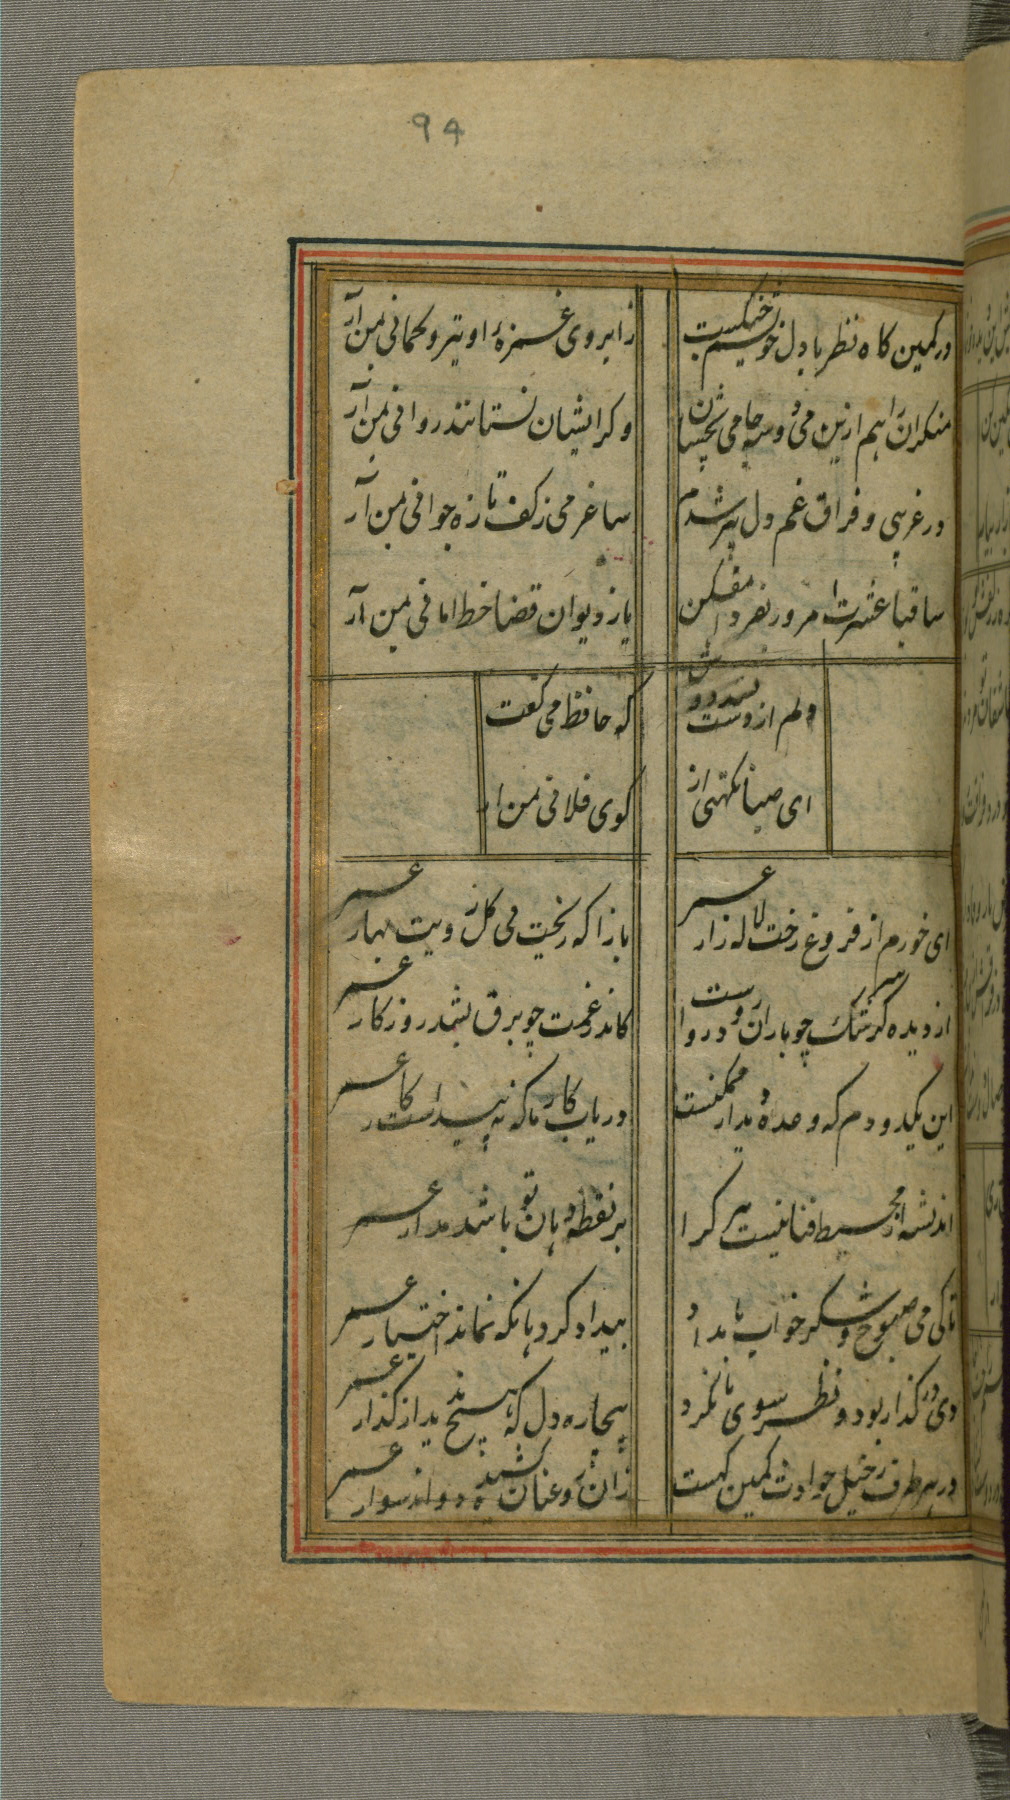 94
در کمین کاه نظر با دل خویشم جنگست
ز ابروی غمزهٔ او تیر و کمانی بمن آر
منکران را هم ازین می دو سه جامی بچشان
وکر ایشان نستانند روانی بمن آر
در غریبی و فراق غم دل پیر شدم
ساغر می ز کف تازه جوانی بمن آر
ساقیا عشرت امروز بفردا مفکن
یا ز دیوان قضا خط امانی بمن آر
دلم از دست بشد دوش
که حافظ می کفت
ای صبا نکهتی از
کوی فلانی بمن آر
ای خورم از فروغ رخت لاله زار عمر
باز آ که ریخت می کل رویت بهار عمر
از دیده کر سرشک چو باران رود رواست
کاندر غمت چو برق بشد روزکار عمر
این یکدو دم که وعدهٔ دیدار ممکنست
دریاب کار ما که نه پیداست کار عمر
اندیشه از محیط فنا نیست هر کرا
بر نقطه دهان تو باشد مدار عمر
تا کی می صبوح و شکر خواب بامداد
بیدار کرد هانکه نماند اختیار عمر
دی در کذار بود و نظر سوی ما نکرد
بیچاره دل که هیچ ندید از کذار عمر
در هر طرف ز خیل حوادث کمین کهست
زان رو عنان کشیده دواند سوار عمر